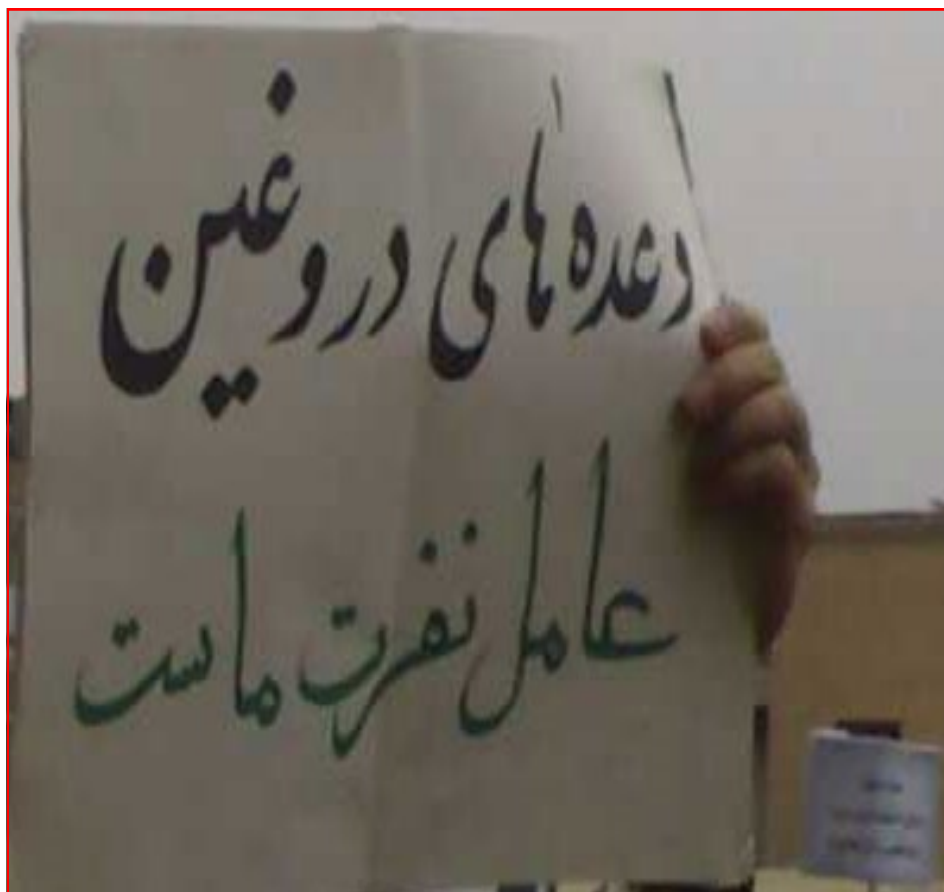 وعده های دروغین
عامل نفرت ماست